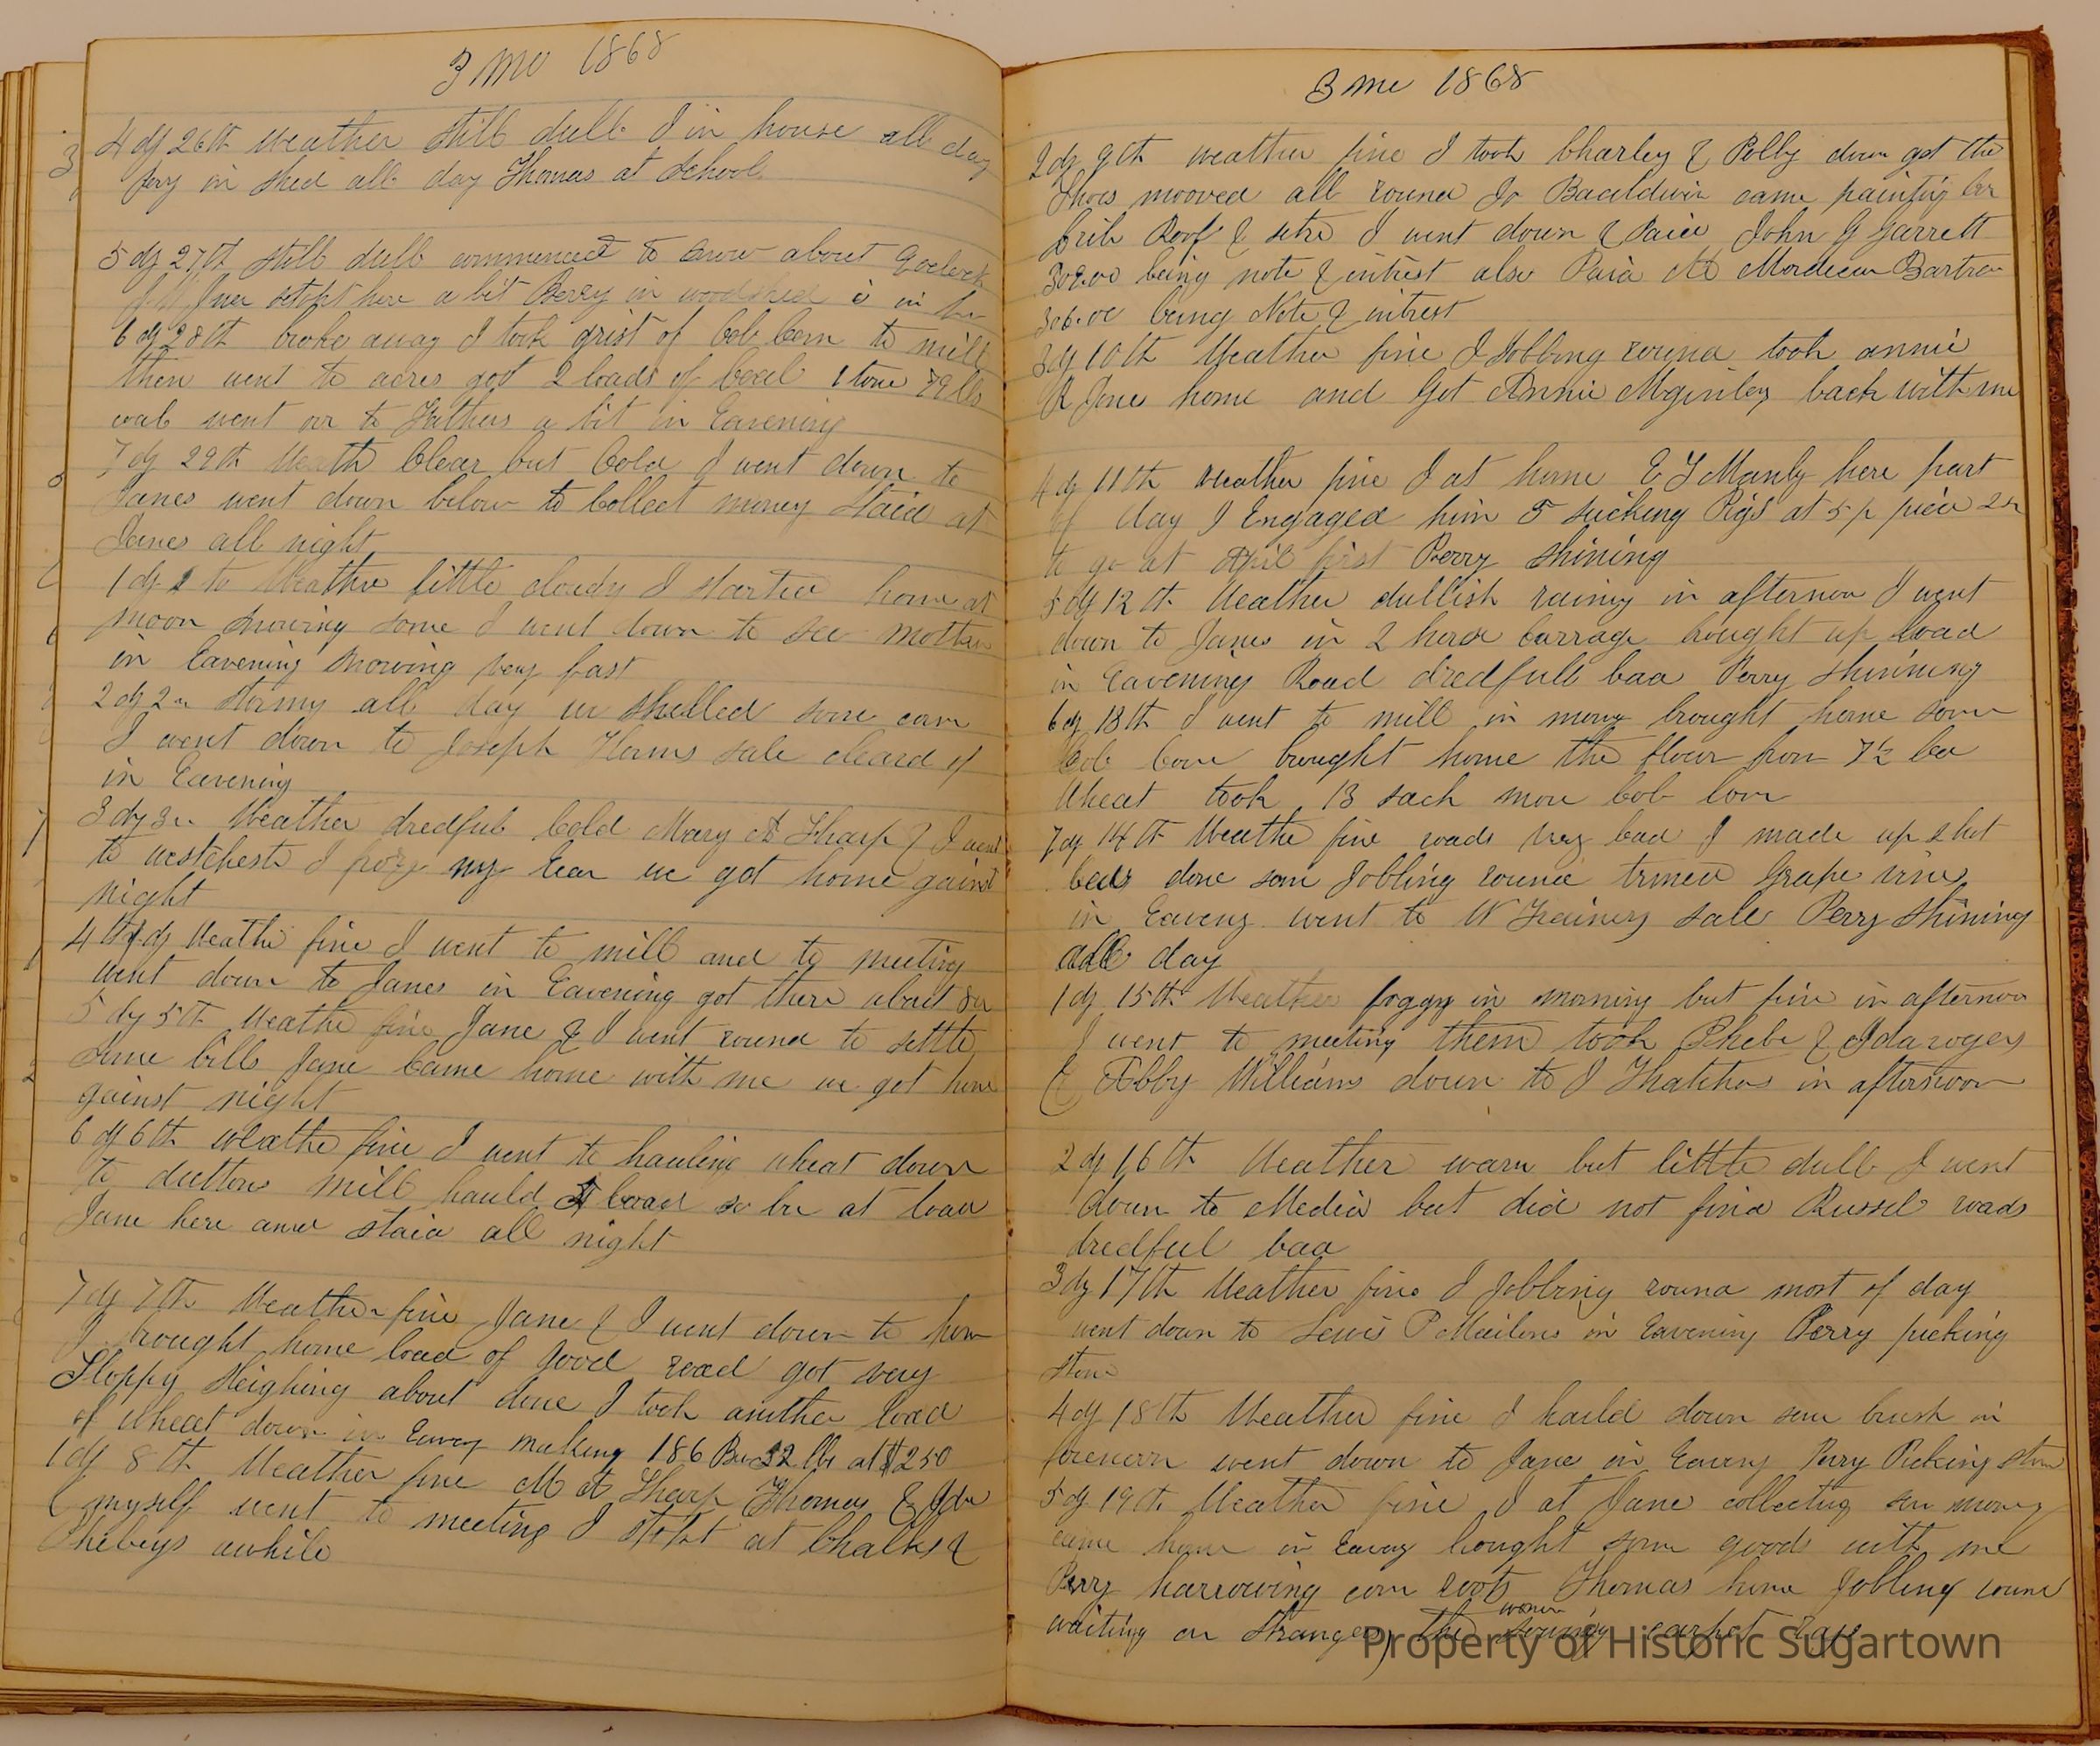 3 mo 1868
4 dy 26th Weather still dull I in house all day
Pery in shed all day Thomas at School
5 dy 27th still dull commenced to snow about 9 oclock
stopt here a bit Perry in woodshed
6 dy 28th broke away I took grist of Cob Corn to mill
then went to acres got 2 loads of Coal 1 tone
coal went ovr to Fathers a bit in Eavening
7 dy 29th Weath Clear but Cold I went down to
Janes went down below to Collect money Staid at
Janes all night
1 dy 1 to Weather little cloudy I started home at
noon snowing some I went down to see Mother
in Eavening snowing very fast
2 dy 2n stormy all day we shelled some corn
I went down to Joseph sale cleard of
in Eavening
3 dy 3n Weather dredful Cold Mary A Tharp & I went
to westchester I froze my Ear we got home gainst
night
4th 4 dy Weathe fine I went to mill and to meeting
went down to Janes in Eavening got there about
5 dy 5th Weathe fine Jane & I went round to settle
some bills Jane Came home with me we got home
gainst night
6 dy 6th Weathe fine I went to hauling wheat down
to duttons mill hauld load at load
Jane here and staid all night
7 dy 7th Weather fine Jane & I went down to hom
I brought home load of good road got very
Sloppy Sleighing about done I took another load
of wheat down in Eaveng making 186 Bu 32 lbs at $250
1 dy 8th Weather fine M A Tharp Thomas & Ida
& myself went to meeting I stopt at Chalks &
Phebeys awhile
3 mo 1868
2 dy 9th weather fine I took Charley & Polly down got the
Shoes mooved all round Jo Baaldwin came painting
Crib Roof & I went down & Paid John G Garrett
being note & intrest also Paid Mordecai Bartram
being Note & intrest
3 dy 10th Weather fine I Jobbing round took annie
R Jane home and Got Annie Mginley back with me
4 dy 11th weather fine I at home E T Manly here part
of day I Engaged him 5 sucking Pigs at 5 p piece
to go at April first Perry shining
5 dy 12th Weather dullish rainy in afternon I went
down to Janes in 2 horse Carrage bought up load
in Eavening Road dredfull bad Perry shinning
6 dy 13th I went to mill in morng brought home som
Cob Corn brought home the flour from 7½ bu
Wheat took 13 sack more Cob Corn
7 dy 14th Weathe fine roads very bad I made up 2 hot
beds done som Jobbling round trimed Grape vines
in Eaveng went to W Trainers sale Perry Shining
all day
1 dy 15th Weather foggy in morning but fine in afternoon
I went to meeting then took Phebe & Ida rogers
& Abby Williams down to J Thatchers in afternoon
2 dy 16th Weather warm but little dull I went
down to Media but did not find Russel roads
dredful bad
3 dy 17th Weather fine I Jobbing round most of day
went down to Lewis in Eavening Perry picking
stone
4 dy 18th Weather fine I hauld down som brush in
forenoon went down to Jane in Eaveng Perry Picking stone
5 dy 19th Weather fine I at Jane collecting som money
came home in Eaveng bought some goods with me
Perry harrowing corn roots Thomas home Jobling round
women
waiting on Strangers, the sowing carpet rags
Property of Historic Sugartown